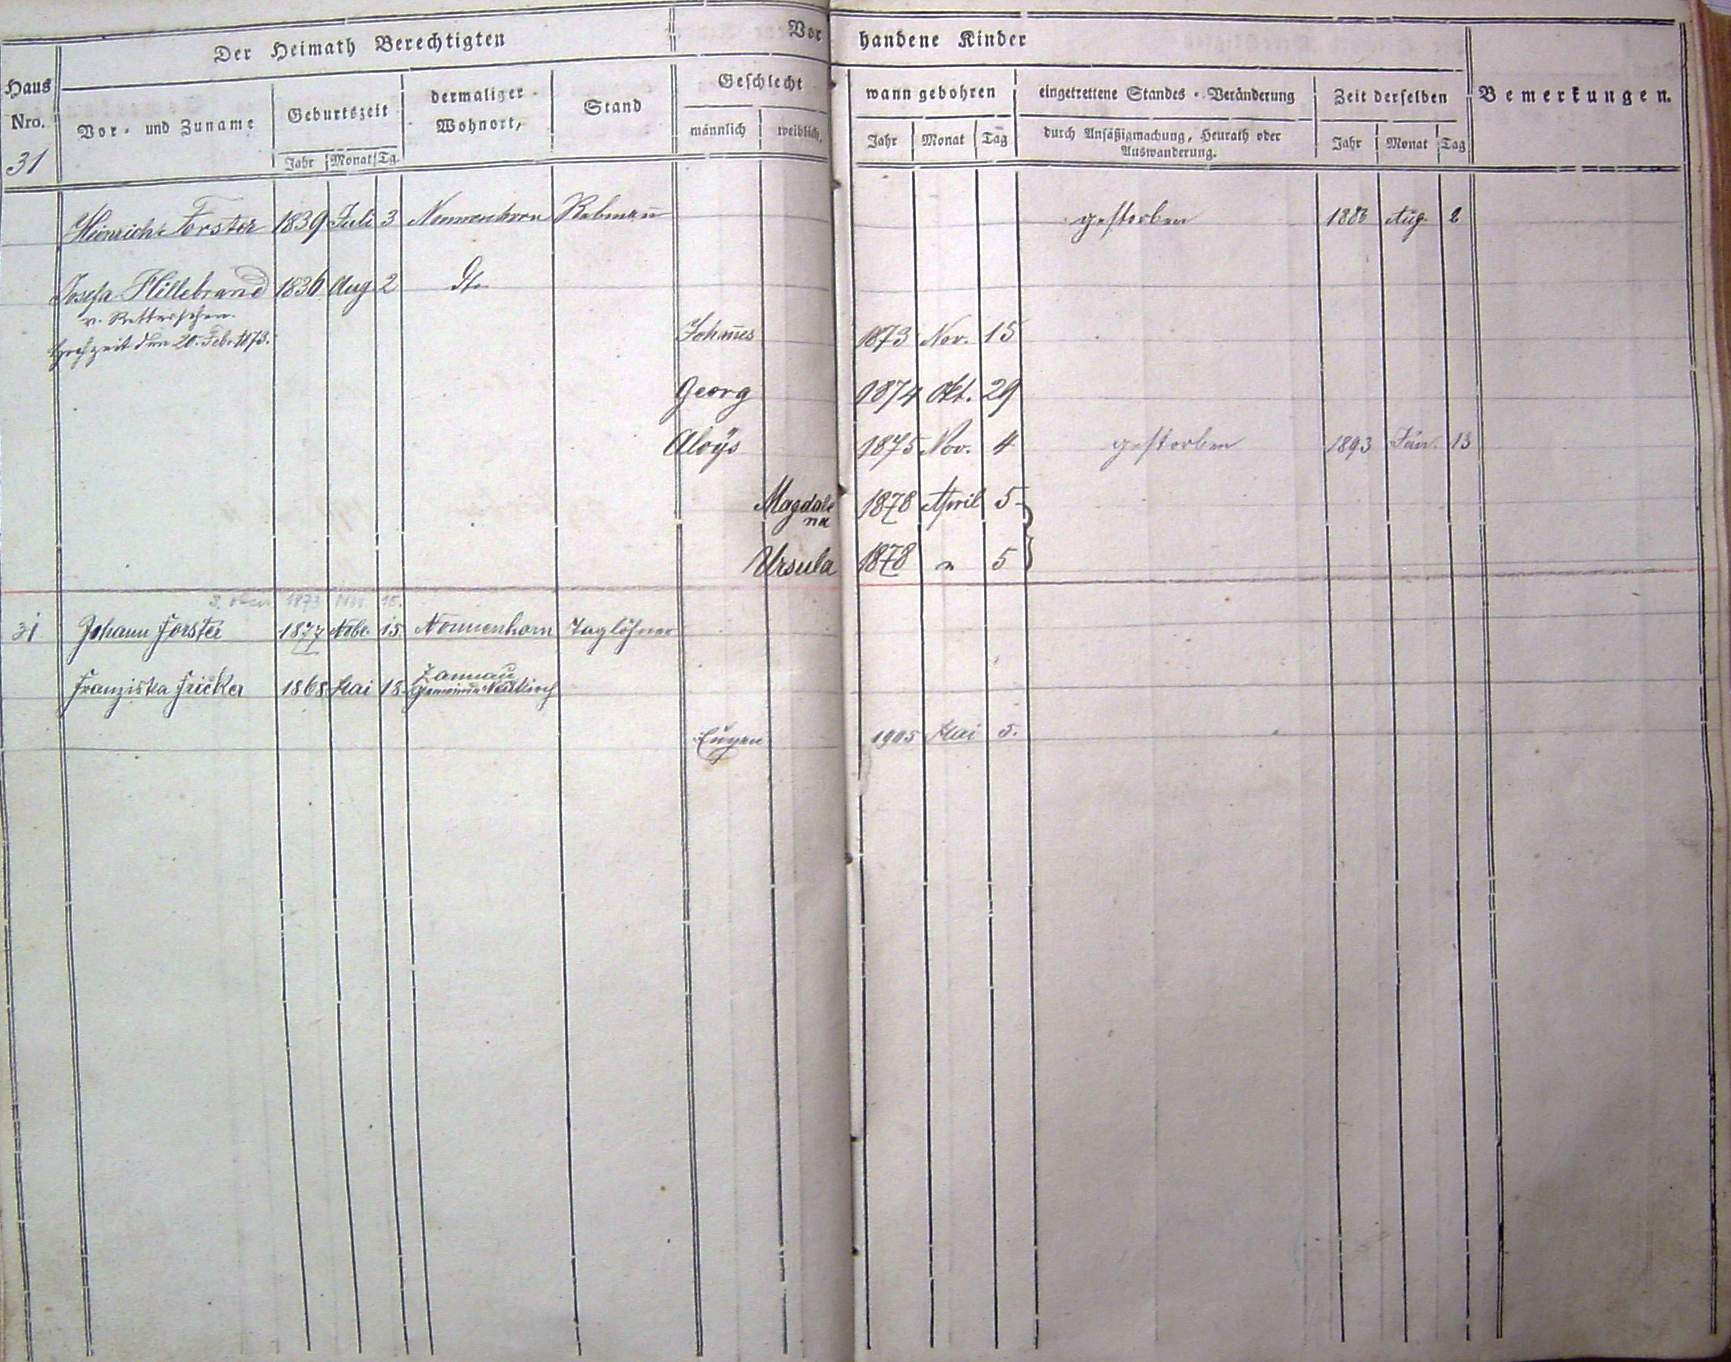 Der Heimath Berechtigten
Vor
handene Kinder
Haus
Nro.
31
Vor- und Zuname
Geburtszeit
Jahr Monat Tg.
dermaliger
Wohnort,
Stand
Geschlecht
männlich weiblich,
wann gebohren
Jahr Monat Tag
eingetrettene Standes-Veränderung
durch Ansäßigmachung, Heurath oder
Auswanderung.
Zeit derselben
Jahr Monat Tag
Bemerkungen.
Heinrich Forster 1839 Juli 3 Nonnenhorn Rebmañ gestorben 1883 Aug. 2
Josefa Hillebrand 1836 Aug 2 dto
v.
Hochzeit den 20. Feb. 1873.
Johañes 1873 Nov. 15
Georg 1874 Okt. 29
Aloÿs 1875 Nov. 4 gestorben 1893 Jan. 13
Magdale
na 1878 April 5
Ursula 1878 " 5
s. oben 1873 Nov. 15.
31 Johann Forster 1877 Nobr. 15 Nonnenhorn Taglöhner
Franziska Fricker 1868 Mai 15
Gemeinde Neukirch
Eugen 1905 Mai 5.